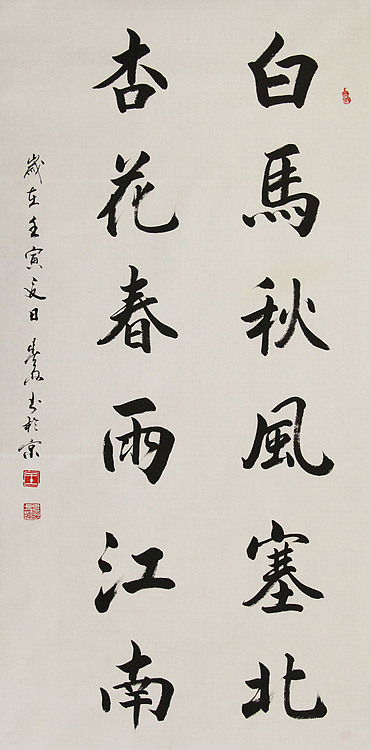 白馬秋風塞北
杏花春雨江南
歲在壬寅夏日 書於京